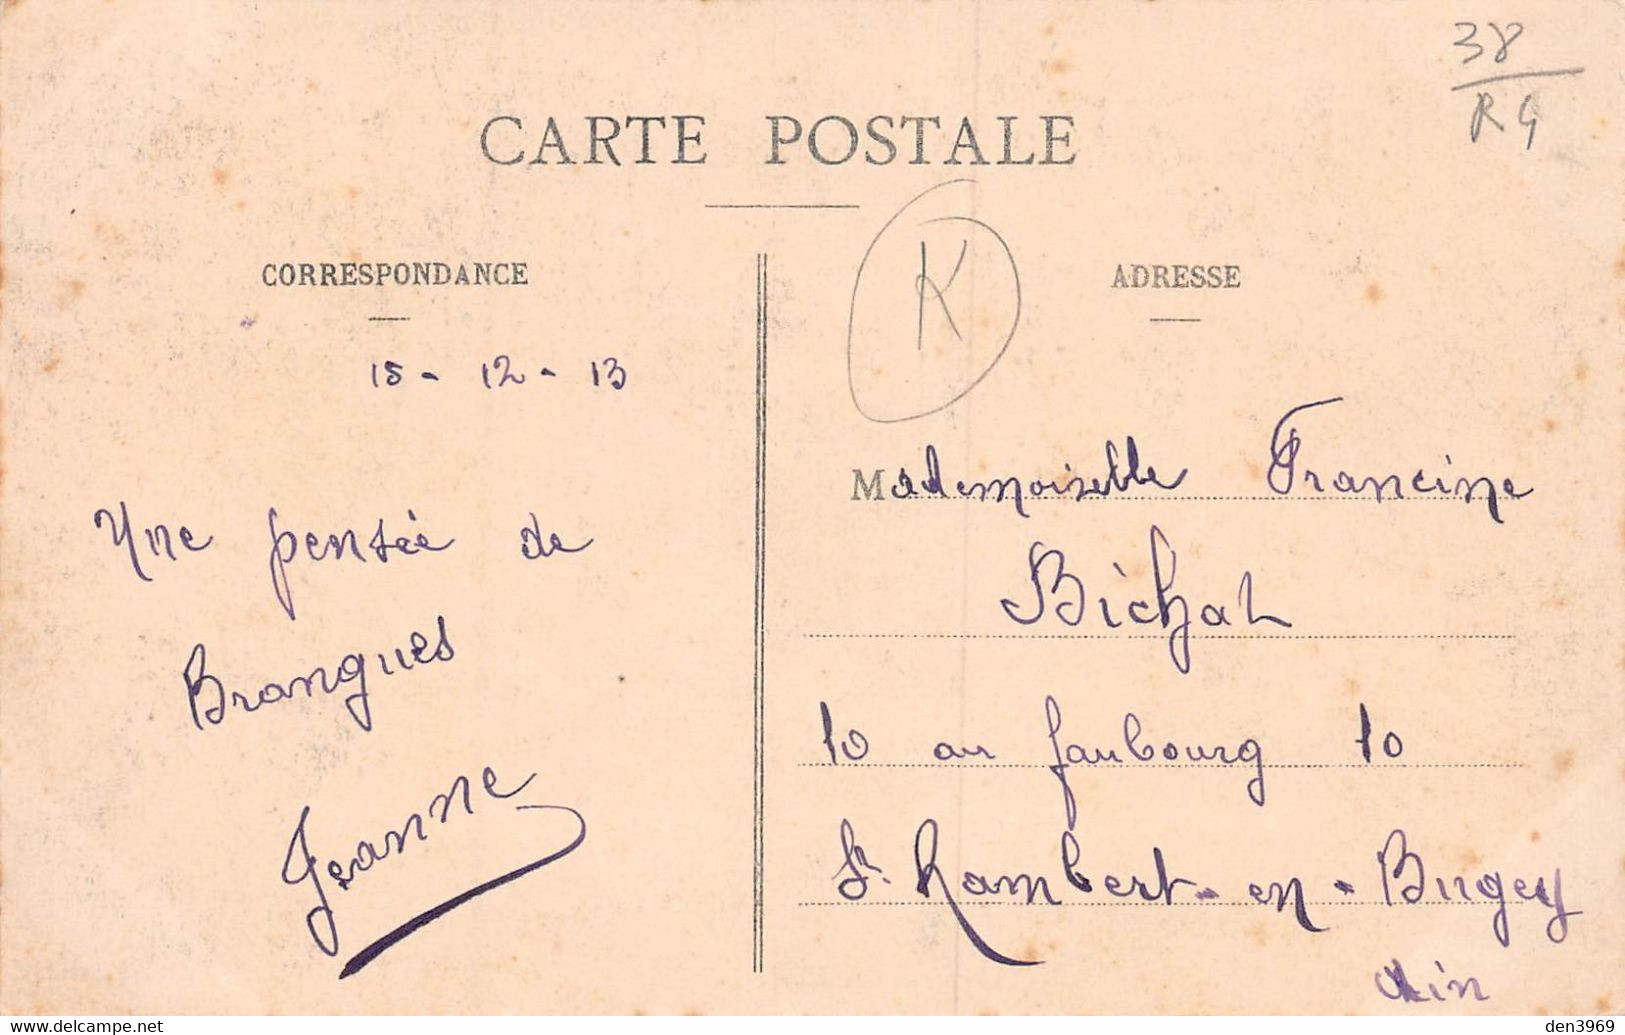 38
R9
CARTE POSTALE
K
CORRESPONDANCE
15 - 12 - 13
Une pensée de
Brangues
Jeanne
ADRESSE
Mademoiselle Francine
Bichat
10 au faubourg 10
St. Rambert-en-Bugey
Ain
www.delcampe.net
den3969